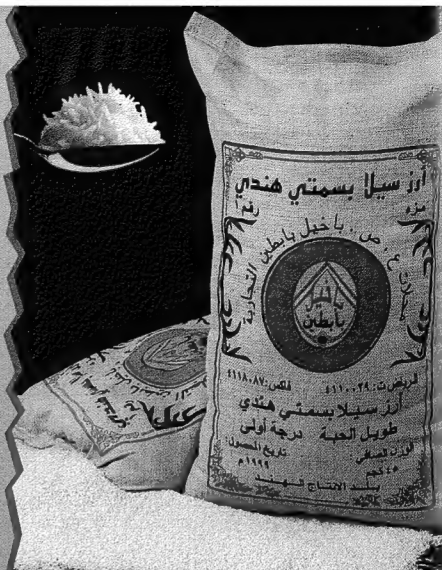 أرز سيلا بسمتي هندي
مزه
محلات ع . ص . باخيل بابطين التجارية
باخيل
بابطين
الرياض ت: ٤١١٠٠٢٩ فاكس: ٤١١٨٠٨٧
أرز سيلا بسمتي هندي
طويل الحبة درجة أولى
الوزن الصافي تاريخ المحصول:
٤٥ كجم ١٩٩٩م
بلد الانتاج الهند